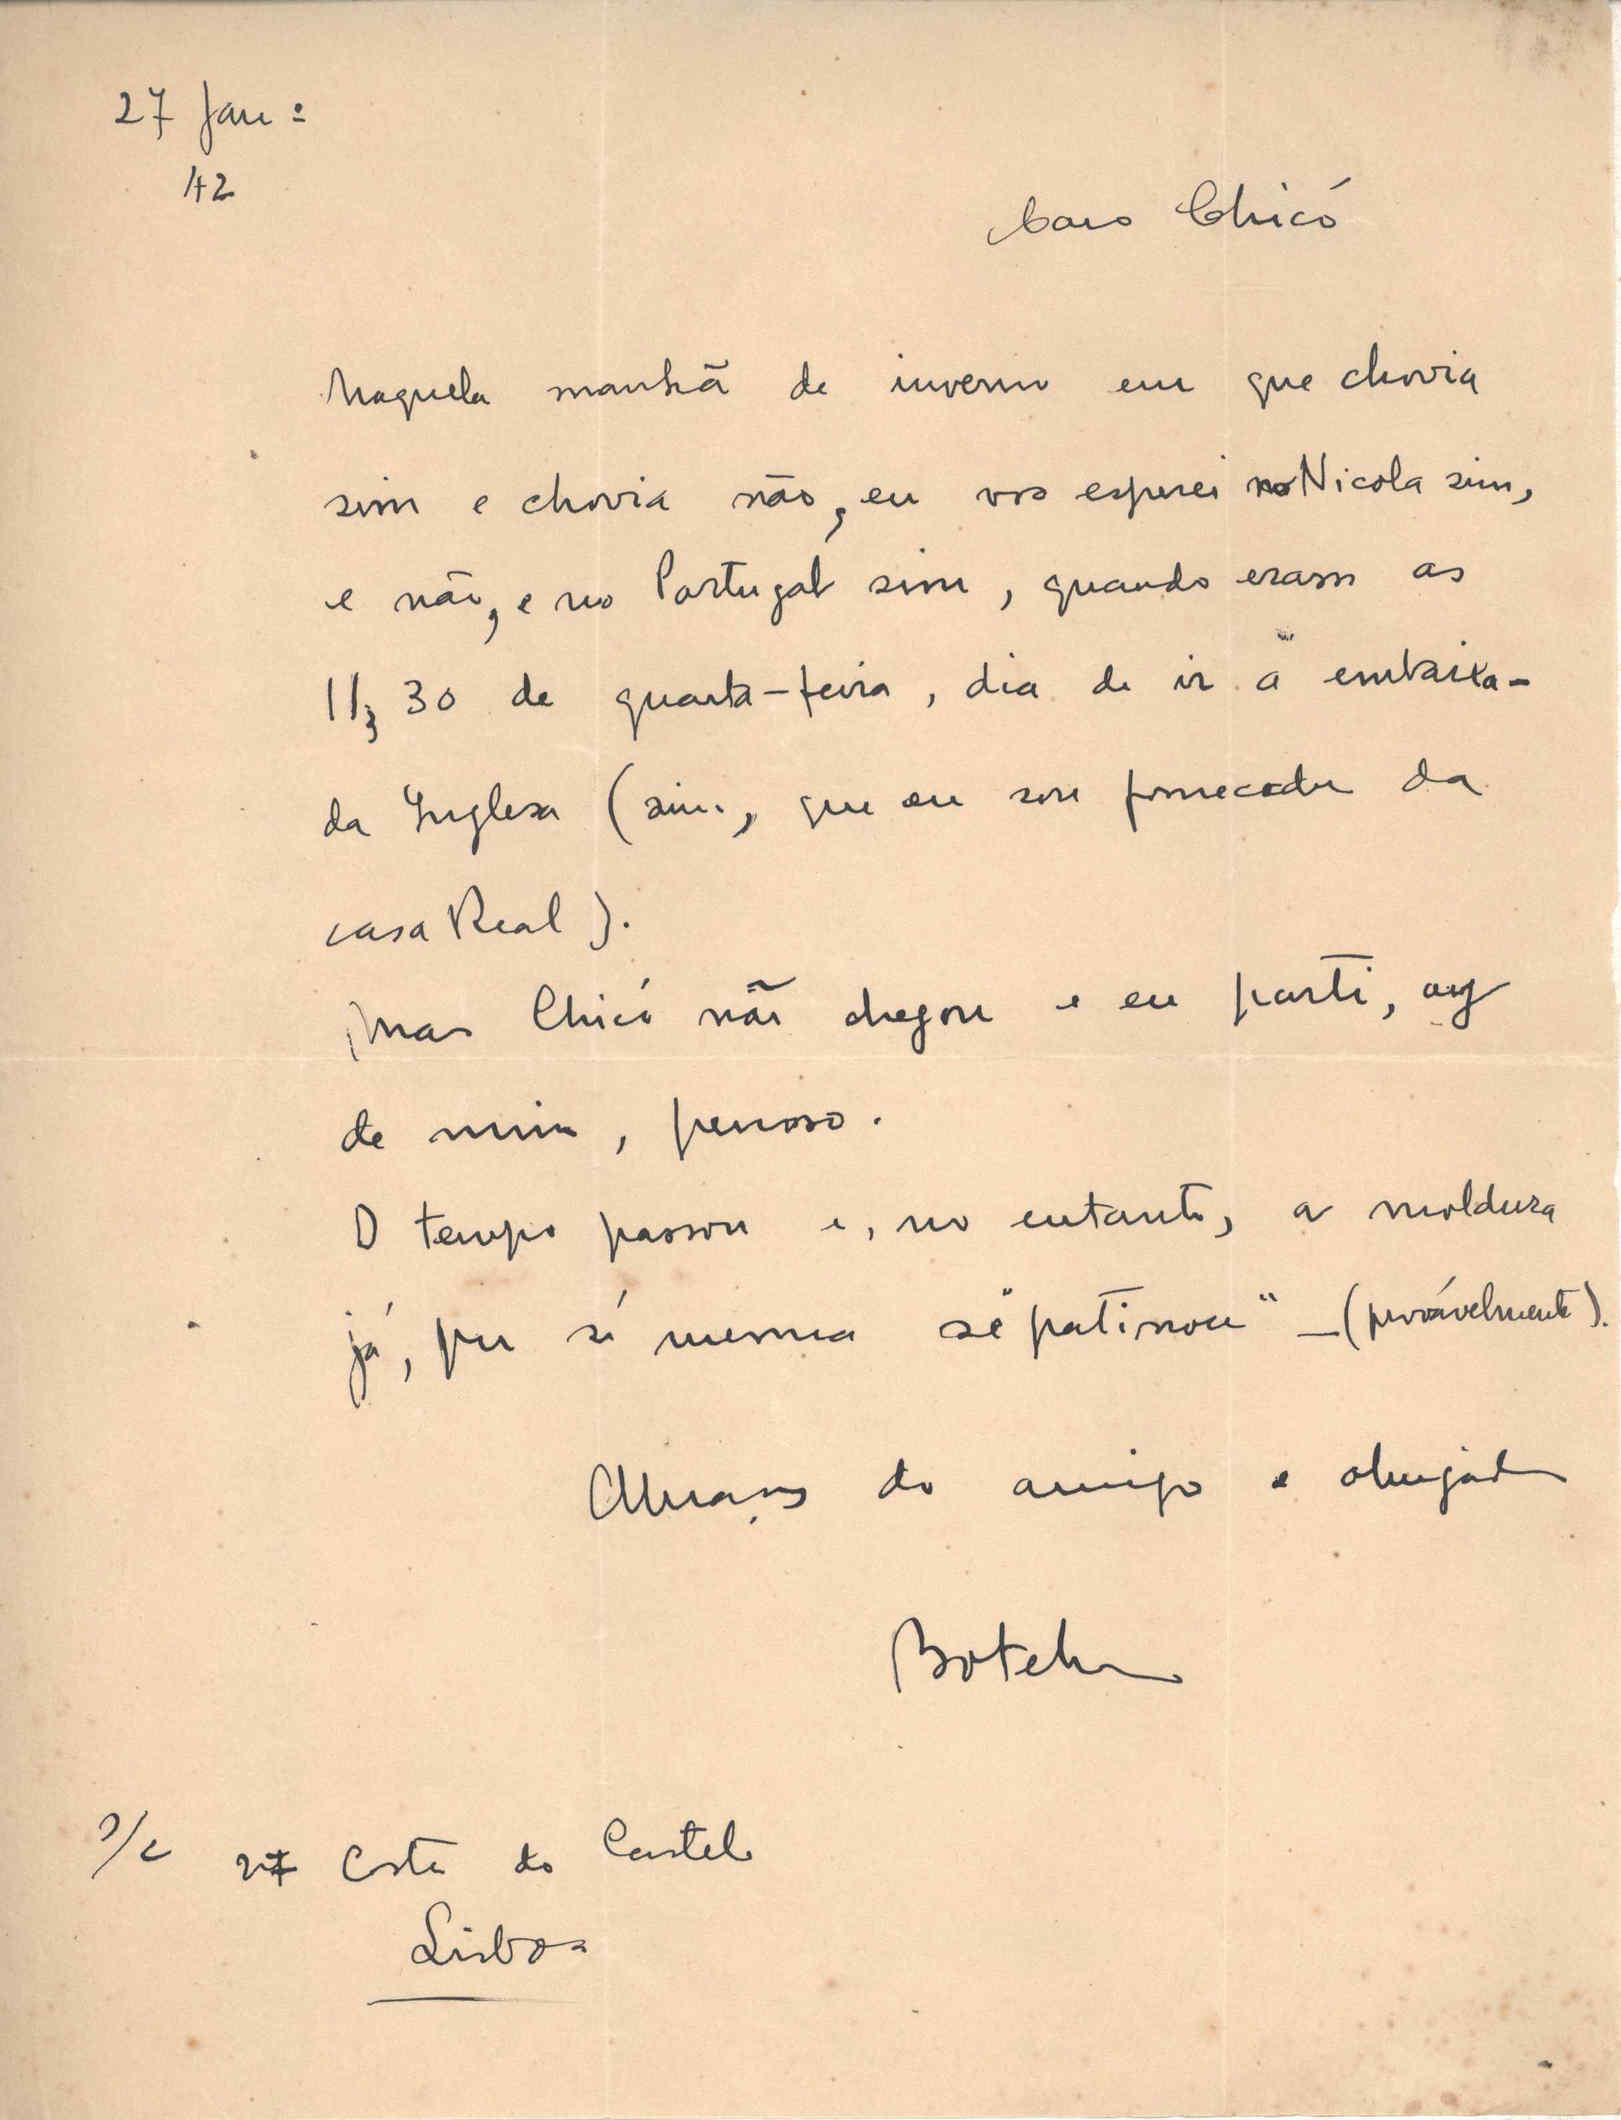 27 Jan:º
42
Caro Chicó
Naquela manhã de inverno em que chovia
sim e chovia não, eu vos esperei no Nicola sim,
e não, e no Portugal sim, quando eram as
11,30 de quarta-feira, dia de ir à embaixa-
da Inglesa (sim, que eu sou fornecedor da
casa Real).
Mas Chicó não chegou e eu parti, ay
de mim, penoso.
O tempo passou e, no entanto, a moldura
já, por si mesma se "patinou" - (provávelmente).
Abraços do amigo e obrigado
Botelho
S/c 27 Costa do Castelo
Lisboa